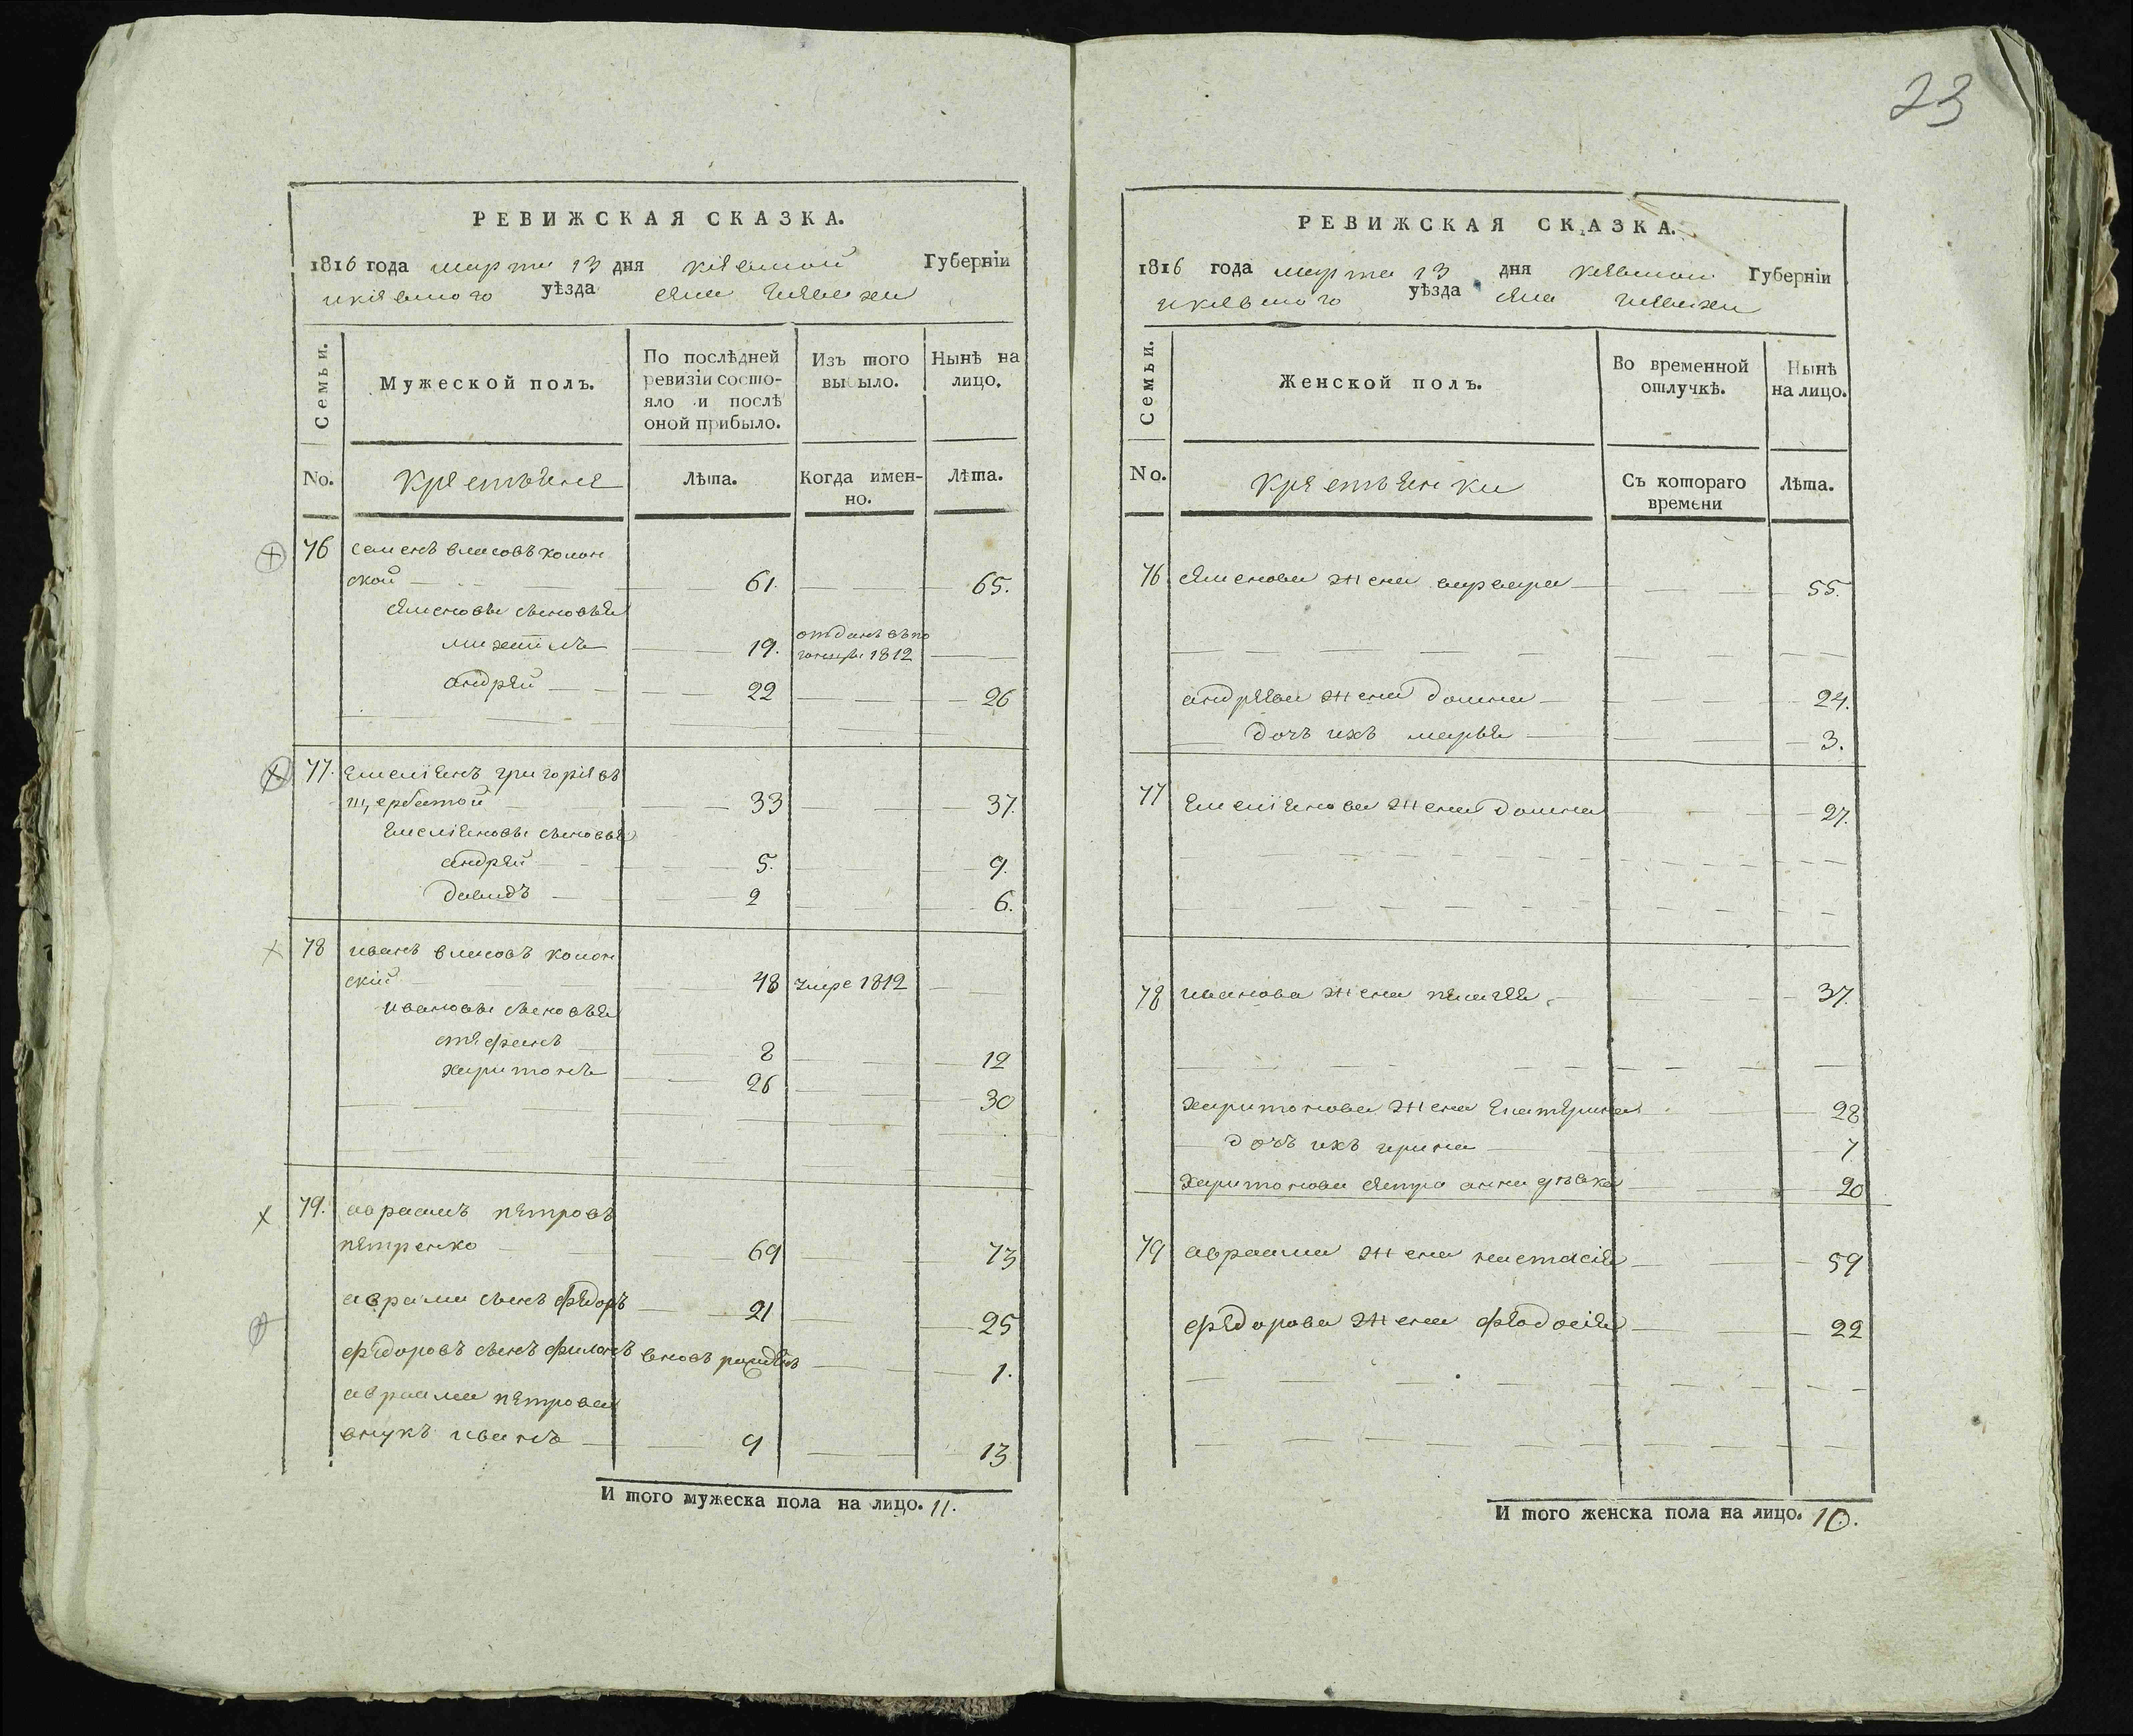 23
РЕВИЖСКАЯ СКАЗКА.
1816 года марта 13 дня кіевской Губерніи
икіевского уѣзда села
Семьи.
Мужеской полъ.
По послѣдней ревизіи состо-
яло и послѣ
оной прибыло.
Изъ того
выбыло.
Нынѣ на
лицо.
No.
крестьяне
Лѣта.
Когда имен-
но.
Лѣта.
76 семенъ власовъ
ской 61. 65.
семеновы сыновья
михаилъ 19. отданъ 1812
андрей 22 26
77. емеліянъ григоріевъ
щербатой 33 37.
емеліяновы сыновья
андрей 5. 9.
давидъ 2 6.
78 иванъ власовъ
скій 48 умре 1812
ивановы сыновья
стефанъ 8 12
харитонъ 26 30
79. авраамъ петровъ
петренко 69 73
аврама сынъ федоръ 21 25
федоровъ сынъ филонъ вновь рожденъ 1.
авраама петрова
внукъ иванъ 9 13
И того мужеска пола на лицо. 11.
РЕВИЖСКАЯ СКАЗКА.
1816 года марта 13 дня кіевской Губерніи
икіевского уѣзда села
Семьи.
Женской полъ.
Во временной
отлучкѣ.
Нынѣ
на лицо.
No.
крестьянки
Съ котораго
времени
Лѣта.
76 семенова жена варвара 55.
андреева жена домна 24.
дочь ихъ марья 3.
77 емеліянова жена домна 27.
78 иванова жена пелагея 37.
харитонова жена екатерина 28
дочь ихъ ирина 7
харитонова сестра анна девка 20
79 авраама жена настасія 59
федорова жена феодосія 22
И того женска пола на лицо. 10.